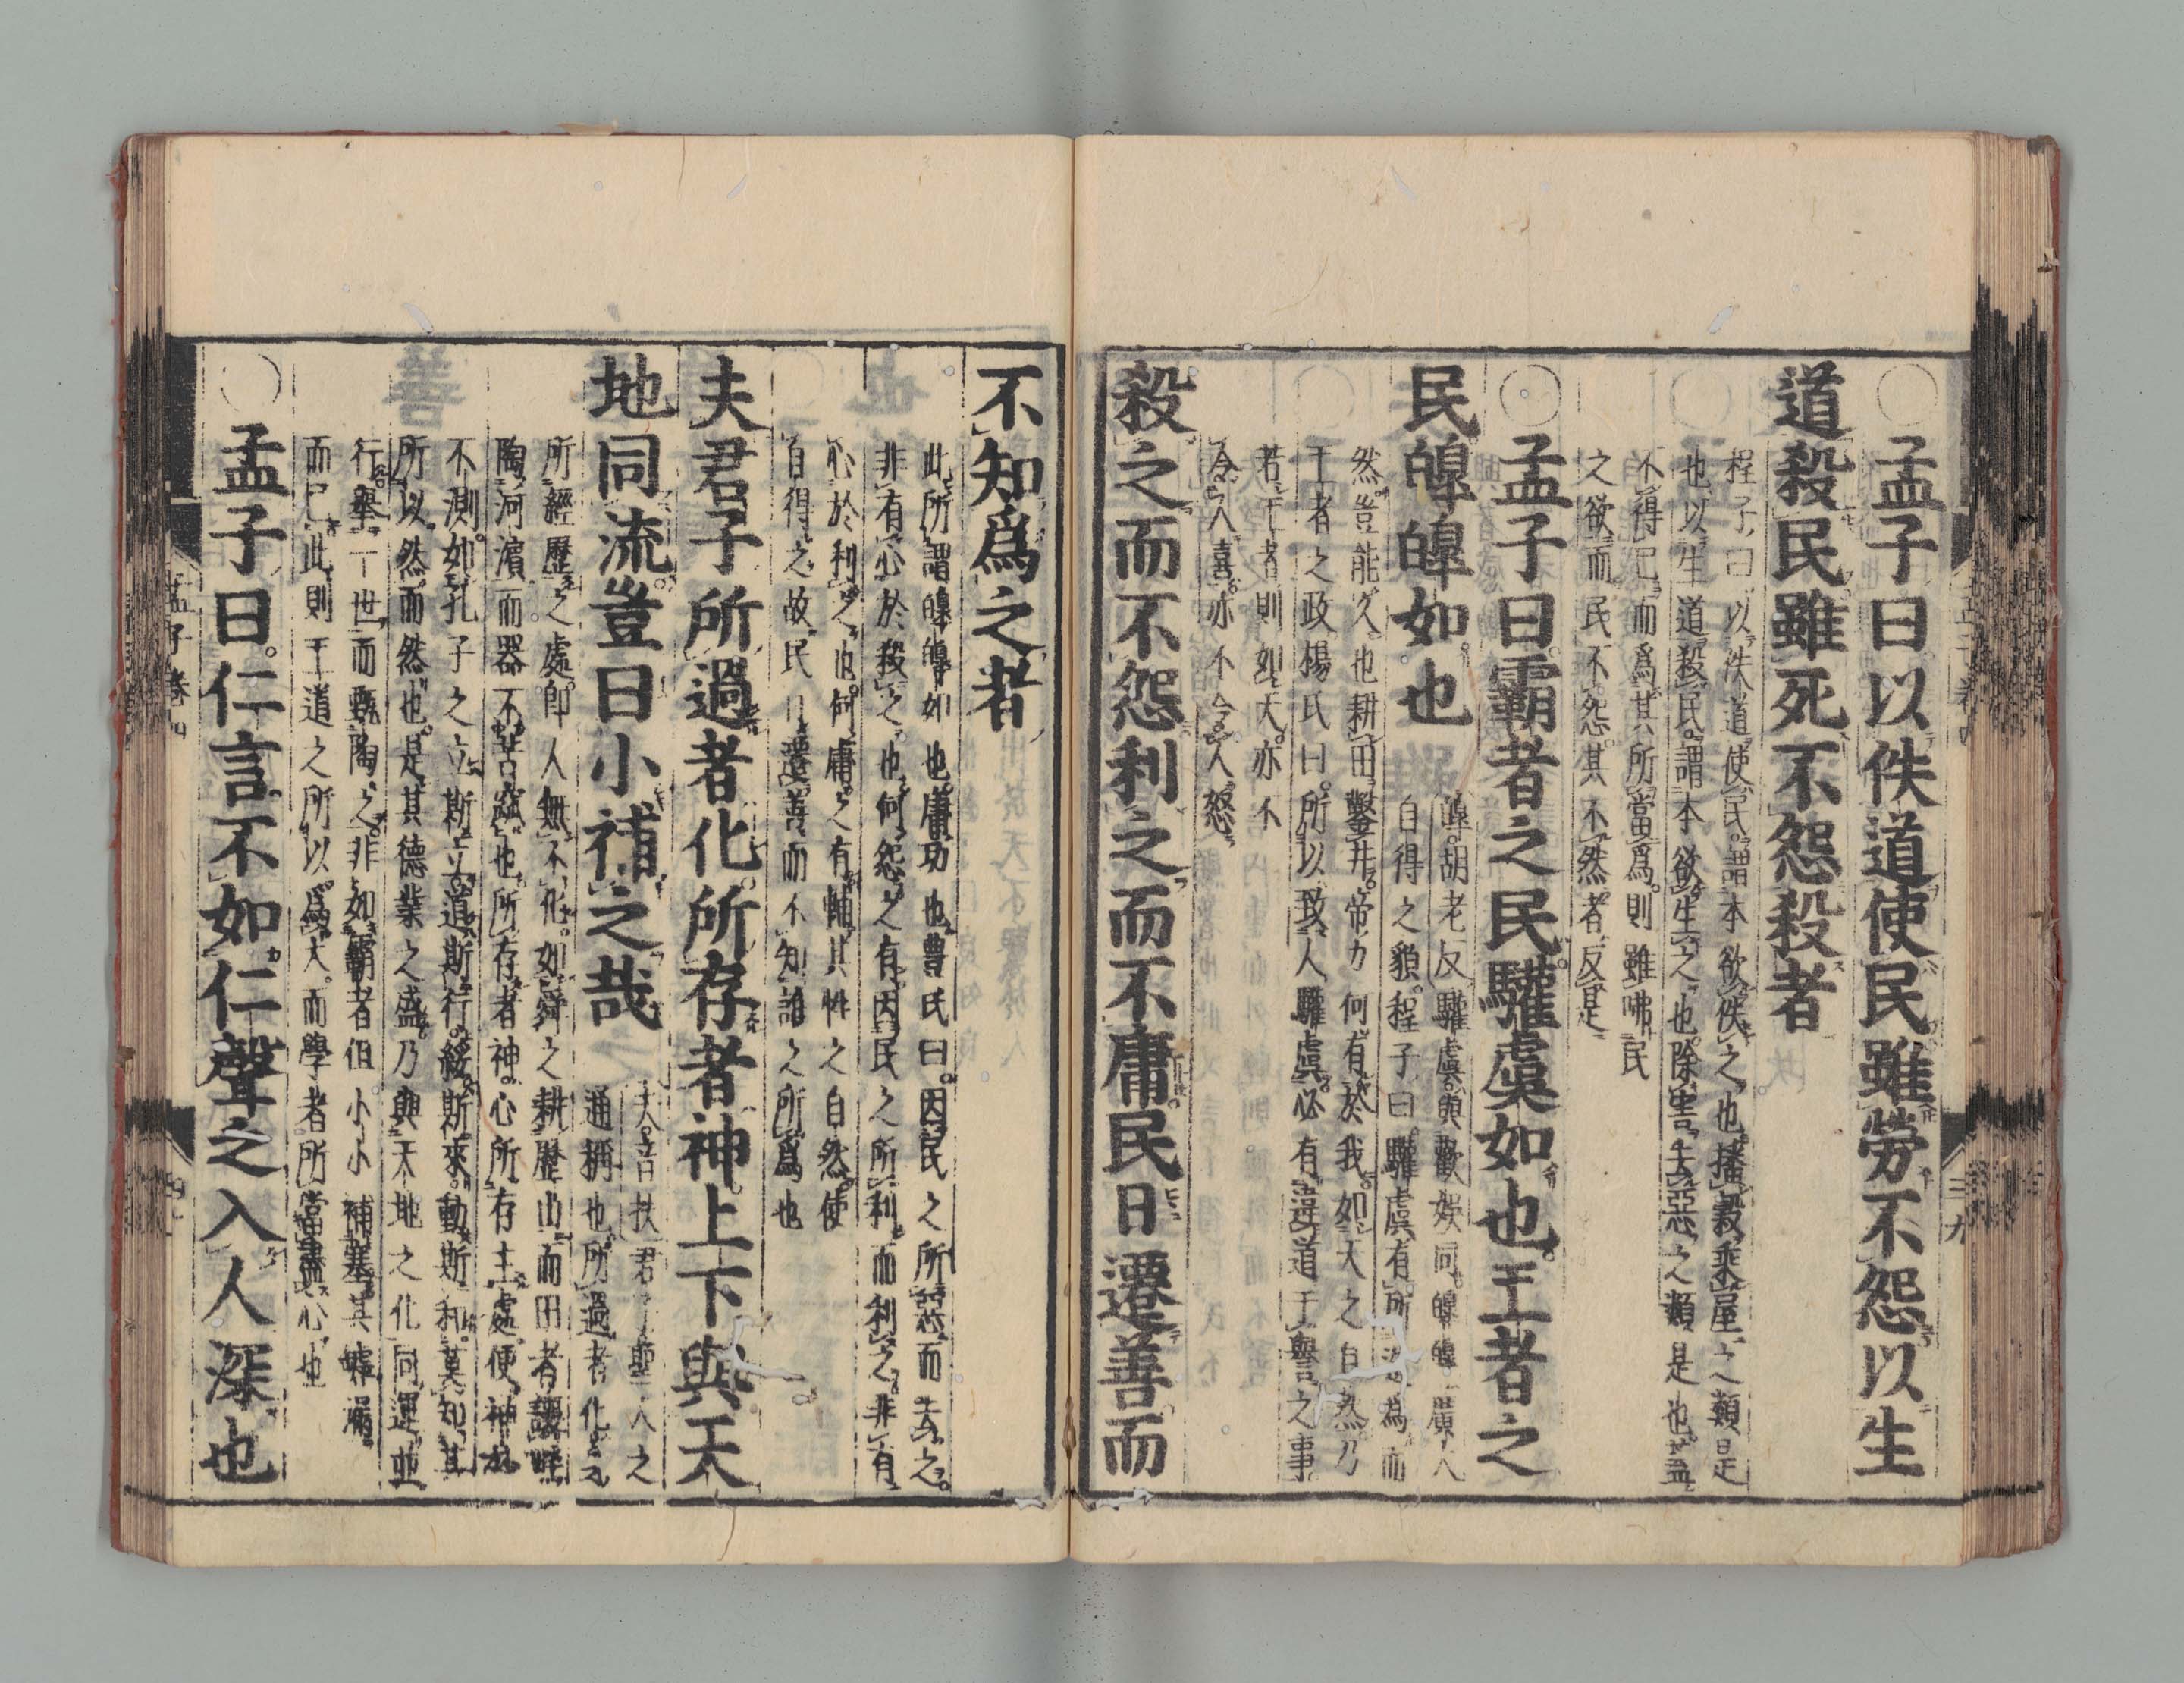 ○孟子曰以佚道使民雖勞不怨以生
道殺民雖死不怨殺者
程子曰以佚道使民謂本欲佚之也播穀乘屋之類是
也以生道殺民謂本欲生之也除害去惡之類是也蓋
不得已而爲其所當爲則雖咈民
之欲而民不怨其不然者反是
○孟子曰霸者之民驩虞如也王者之
民皥皥如也
皥胡老反驩虞與歡娛同皥皥廣大
自得之貌程子曰驩虞有所造爲而
然豈能久也耕田鑿井帝力何有於我如天之自然乃
王者之政楊氏曰所以致人驩虞必有違道干譽之事
若王者則如天亦不
令人喜亦不令人怒
殺之而不怨利之而不庸民日遷善而
不知爲之者
此所謂皥皥如也庸功也豐氏曰因民之所惡而去之
非有心於殺之也何怨之有因民之所利而利之非有
心於利之也何庸之有輔其性之自然使
自得之故民日遷善而不知誰之所爲也
夫君子所過者化所存者神上下與天
地同流豈曰小補之哉
夫音扶君子聖人之
通稱也所過者化身
所經歷之處卽人無不化如舜之耕歷山而田者讓畔
陶河濱而器不苦窳也所存者神心所存主處便神妙
不測如孔子之立斯立道斯行綏斯來動斯和莫知其
所以然而然也是其德業之盛乃與天地之化同運並
行舉一世而甄陶之非如霸者但小小補塞其罅漏
而已此則王道之所以爲大而學者所當盡心也
○孟子曰仁言不如仁聲之入人深也
孟子卷四
三九